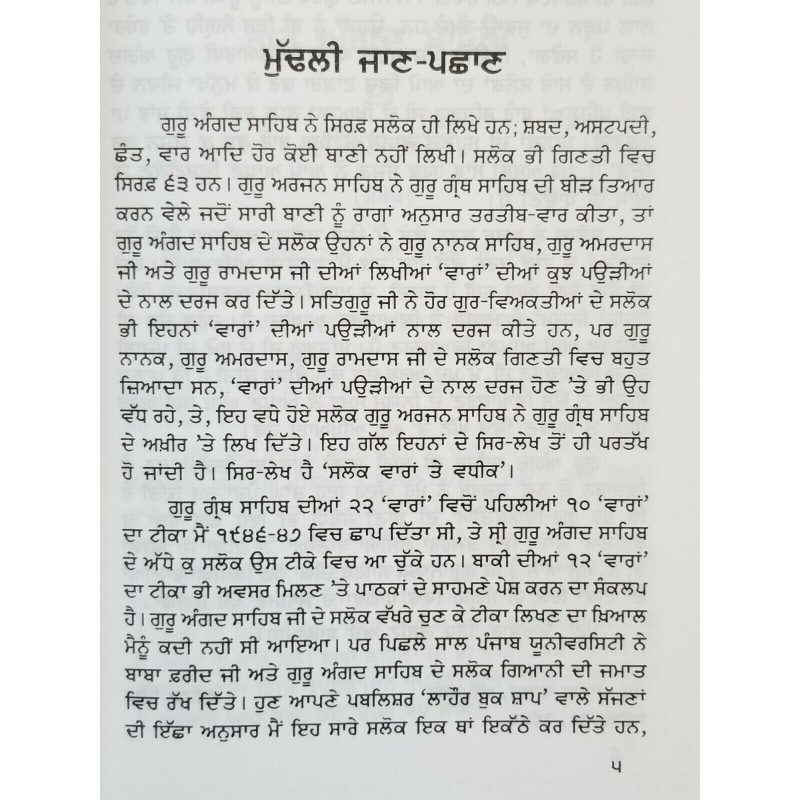 ਮੁੱਢਲੀ ਜਾਣ-ਪਛਾਣ
ਗੁਰੂ ਅੰਗਦ ਸਾਹਿਬ ਨੇ ਸਿਰਫ਼ ਸਲੋਕ ਹੀ ਲਿਖੇ ਹਨ; ਸ਼ਬਦ, ਅਸਟਪਦੀ,
ਛੰਤ, ਵਾਰ ਆਦਿ ਹੋਰ ਕੋਈ ਬਾਣੀ ਨਹੀਂ ਲਿਖੀ। ਸਲੋਕ ਭੀ ਗਿਣਤੀ ਵਿਚ
ਸਿਰਫ਼ ੬੩ ਹਨ। ਗੁਰੂ ਅਰਜਨ ਸਾਹਿਬ ਨੇ ਗੁਰੂ ਗ੍ਰੰਥ ਸਾਹਿਬ ਦੀ ਬੀੜ ਤਿਆਰ
ਕਰਨ ਵੇਲੇ ਜਦੋਂ ਸਾਰੀ ਬਾਣੀ ਨੂੰ ਰਾਗਾਂ ਅਨੁਸਾਰ ਤਰਤੀਬ-ਵਾਰ ਕੀਤਾ, ਤਾਂ
ਗੁਰੂ ਅੰਗਦ ਸਾਹਿਬ ਦੇ ਸਲੋਕ ਉਹਨਾਂ ਨੇ ਗੁਰੂ ਨਾਨਕ ਸਾਹਿਬ, ਗੁਰੂ ਅਮਰਦਾਸ
ਜੀ ਅਤੇ ਗੁਰੂ ਰਾਮਦਾਸ ਜੀ ਦੀਆਂ ਲਿਖੀਆਂ ‘ਵਾਰਾਂ’ ਦੀਆਂ ਕੁਝ ਪਉੜੀਆਂ
ਦੇ ਨਾਲ ਦਰਜ ਕਰ ਦਿੱਤੇ। ਸਤਿਗੁਰੂ ਜੀ ਨੇ ਹੋਰ ਗੁਰ-ਵਿਅਕਤੀਆਂ ਦੇ ਸਲੋਕ
ਭੀ ਇਹਨਾਂ ‘ਵਾਰਾਂ’ ਦੀਆਂ ਪਉੜੀਆਂ ਨਾਲ ਦਰਜ ਕੀਤੇ ਹਨ, ਪਰ ਗੁਰੂ
ਨਾਨਕ, ਗੁਰੂ ਅਮਰਦਾਸ, ਗੁਰੂ ਰਾਮਦਾਸ ਜੀ ਦੇ ਸਲੋਕ ਗਿਣਤੀ ਵਿਚ ਬਹੁਤ
ਜ਼ਿਆਦਾ ਸਨ, ‘ਵਾਰਾਂ’ ਦੀਆਂ ਪਉੜੀਆਂ ਦੇ ਨਾਲ ਦਰਜ ਹੋਣ ’ਤੇ ਭੀ ਉਹ
ਵੱਧ ਰਹੇ, ਤੇ, ਇਹ ਵਧੇ ਹੋਏ ਸਲੋਕ ਗੁਰੂ ਅਰਜਨ ਸਾਹਿਬ ਨੇ ਗੁਰੂ ਗ੍ਰੰਥ ਸਾਹਿਬ
ਦੇ ਅਖ਼ੀਰ ’ਤੇ ਲਿਖ ਦਿੱਤੇ। ਇਹ ਗੱਲ ਇਹਨਾਂ ਦੇ ਸਿਰ-ਲੇਖ ਤੋਂ ਹੀ ਪਰਤੱਖ
ਹੋ ਜਾਂਦੀ ਹੈ। ਸਿਰ-ਲੇਖ ਹੈ ‘ਸਲੋਕ ਵਾਰਾਂ ਤੇ ਵਧੀਕ’।
ਗੁਰੂ ਗ੍ਰੰਥ ਸਾਹਿਬ ਦੀਆਂ ੨੨ ‘ਵਾਰਾਂ’ ਵਿਚੋਂ ਪਹਿਲੀਆਂ ੧੦ ‘ਵਾਰਾਂ’
ਦਾ ਟੀਕਾ ਮੈਂ ੧੯੪੬-੪੭ ਵਿਚ ਛਾਪ ਦਿੱਤਾ ਸੀ, ਤੇ ਸ੍ਰੀ ਗੁਰੂ ਅੰਗਦ ਸਾਹਿਬ
ਦੇ ਅੱਧੇ ਕੁ ਸਲੋਕ ਉਸ ਟੀਕੇ ਵਿਚ ਆ ਚੁੱਕੇ ਹਨ। ਬਾਕੀ ਦੀਆਂ ੧੨ ‘ਵਾਰਾਂ’
ਦਾ ਟੀਕਾ ਭੀ ਅਵਸਰ ਮਿਲਣ ’ਤੇ ਪਾਠਕਾਂ ਦੇ ਸਾਹਮਣੇ ਪੇਸ਼ ਕਰਨ ਦਾ ਸੰਕਲਪ
ਹੈ। ਗੁਰੂ ਅੰਗਦ ਸਾਹਿਬ ਜੀ ਦੇ ਸਲੋਕ ਵੱਖਰੇ ਚੁਣ ਕੇ ਟੀਕਾ ਲਿਖਣ ਦਾ ਖ਼ਿਆਲ
ਮੈਨੂੰ ਕਦੀ ਨਹੀਂ ਸੀ ਆਇਆ। ਪਰ ਪਿਛਲੇ ਸਾਲ ਪੰਜਾਬ ਯੂਨੀਵਰਸਿਟੀ ਨੇ
ਬਾਬਾ ਫ਼ਰੀਦ ਜੀ ਅਤੇ ਗੁਰੂ ਅੰਗਦ ਸਾਹਿਬ ਦੇ ਸਲੋਕ ਗਿਆਨੀ ਦੀ ਜਮਾਤ
ਵਿਚ ਰੱਖ ਦਿੱਤੇ। ਹੁਣ ਆਪਣੇ ਪਬਲਿਸ਼ਰ ‘ਲਾਹੌਰ ਬੁਕ ਸ਼ਾਪ’ ਵਾਲੇ ਸੱਜਣਾਂ
ਦੀ ਇੱਛਾ ਅਨੁਸਾਰ ਮੈਂ ਇਹ ਸਾਰੇ ਸਲੋਕ ਇਕ ਥਾਂ ਇਕੱਠੇ ਕਰ ਦਿੱਤੇ ਹਨ,
੫